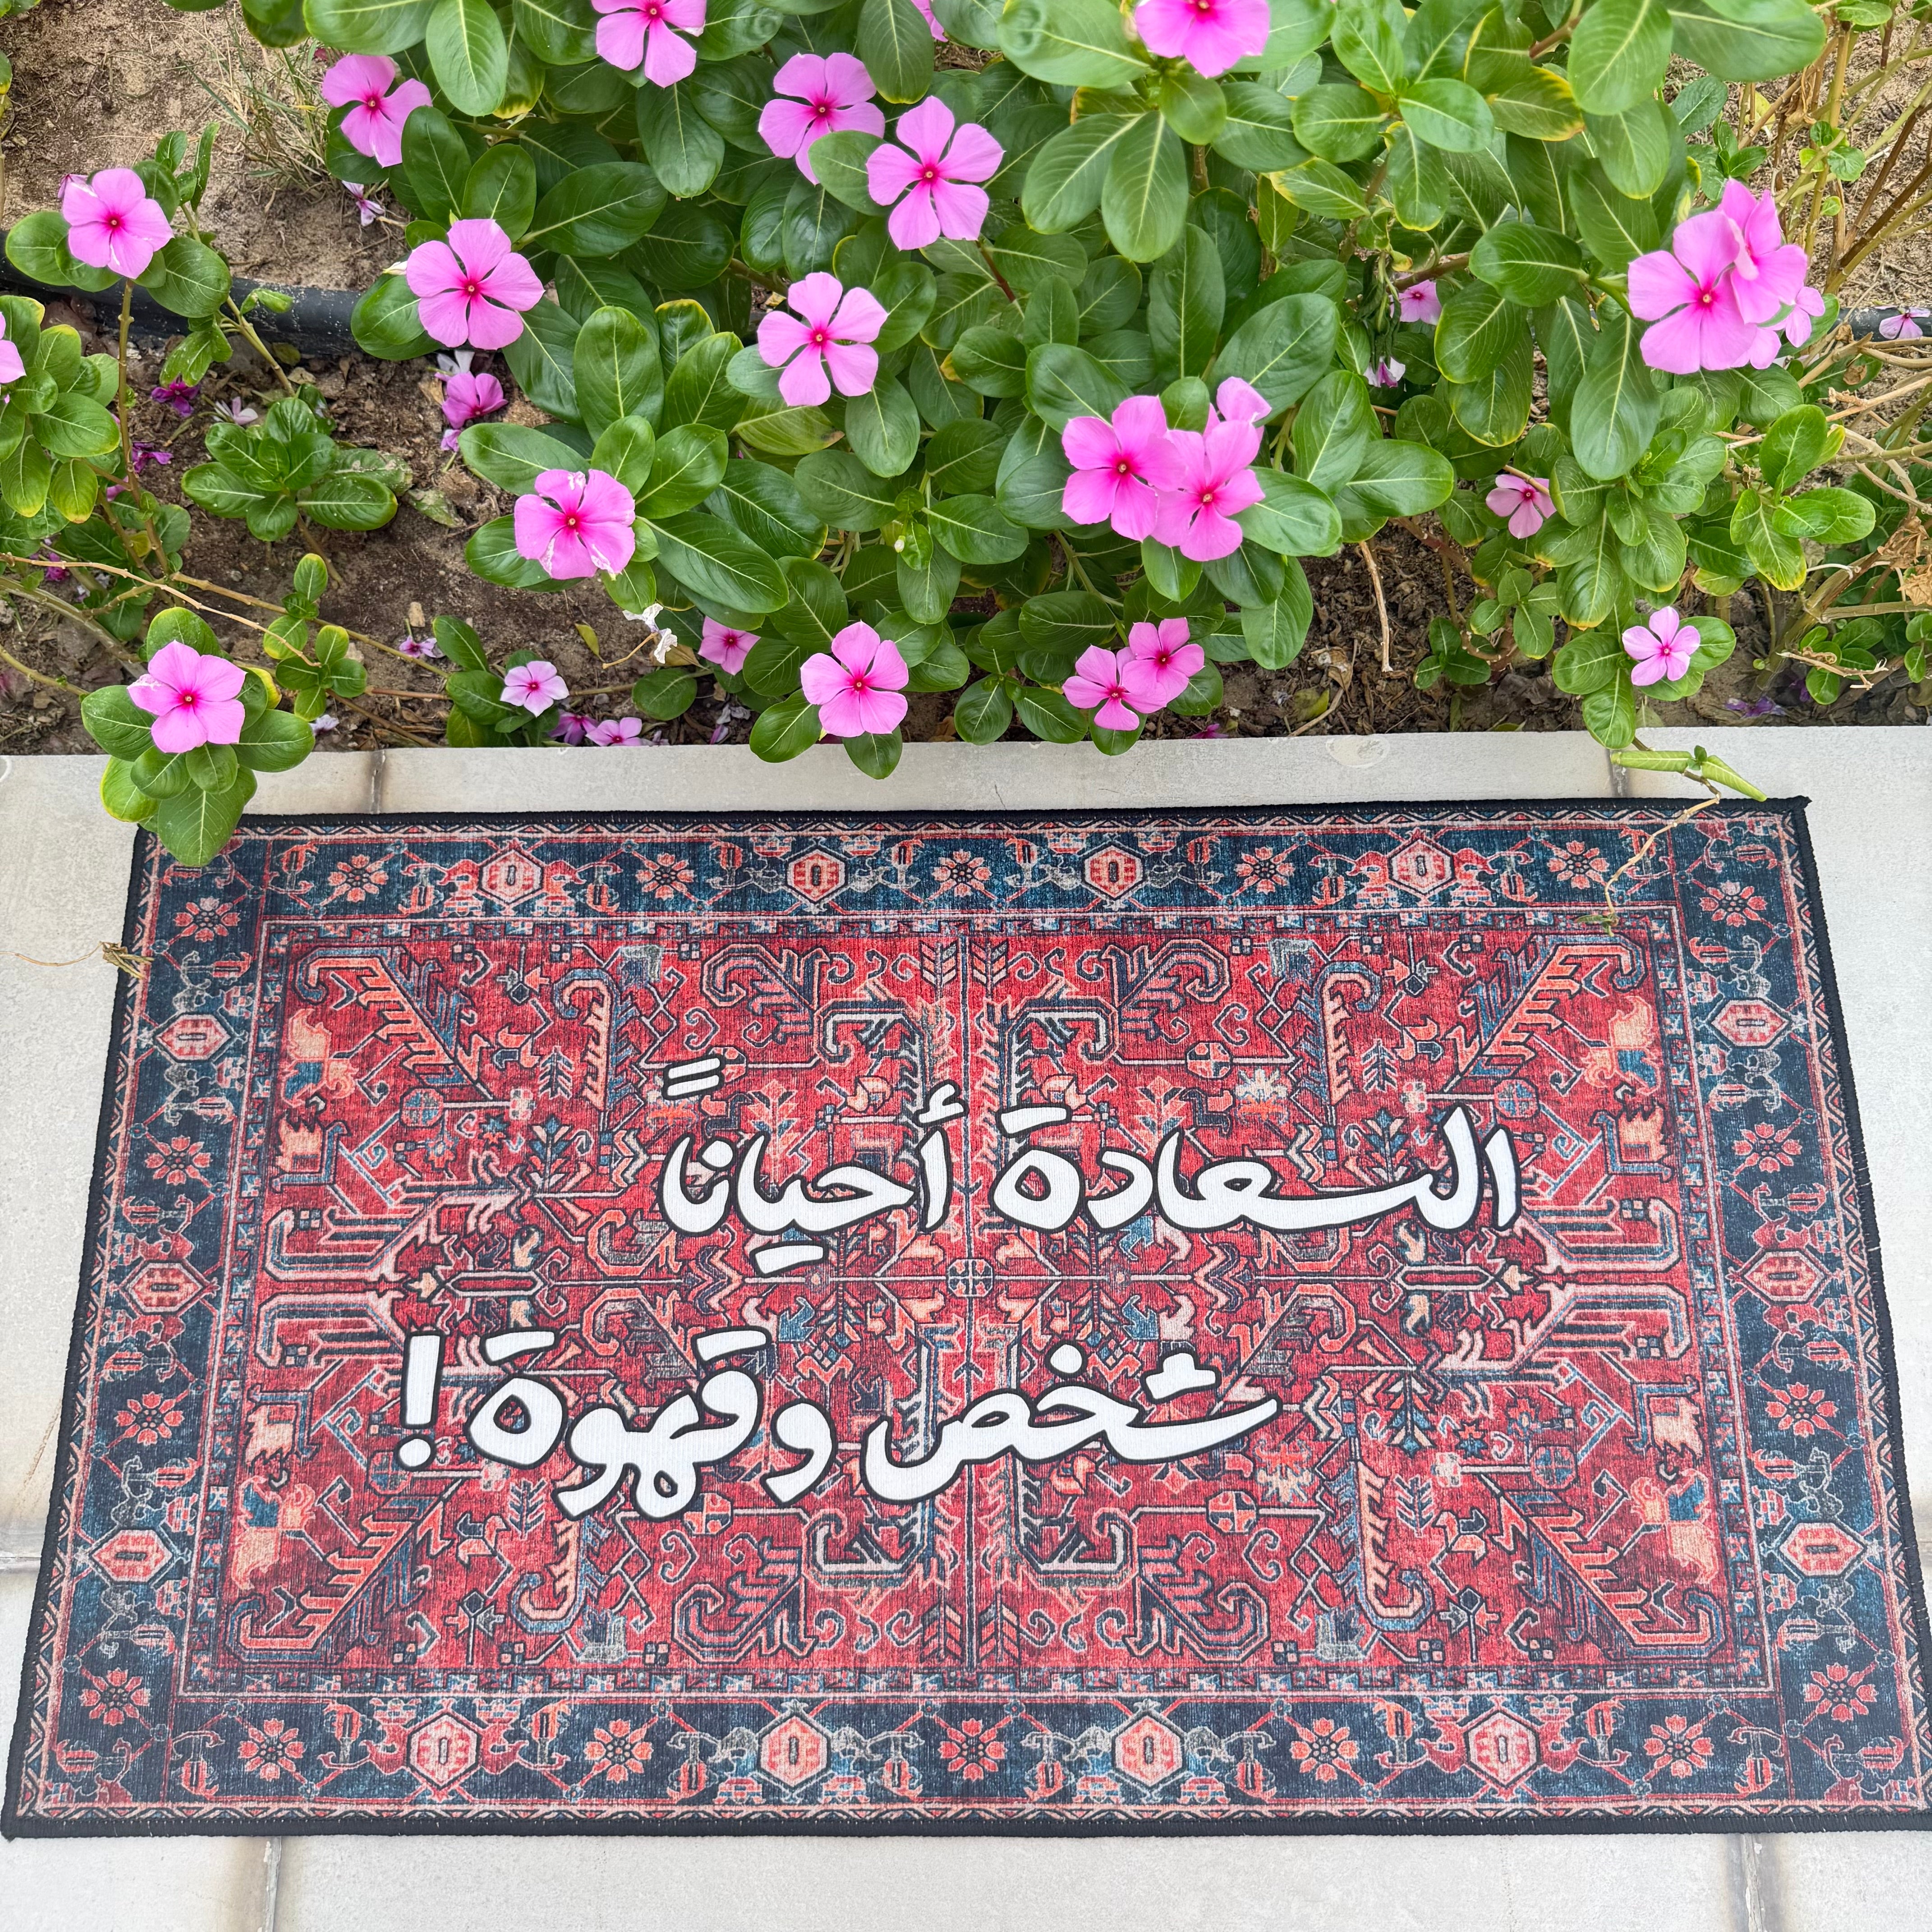 السعادة أحياناً
شخص وقهوة!